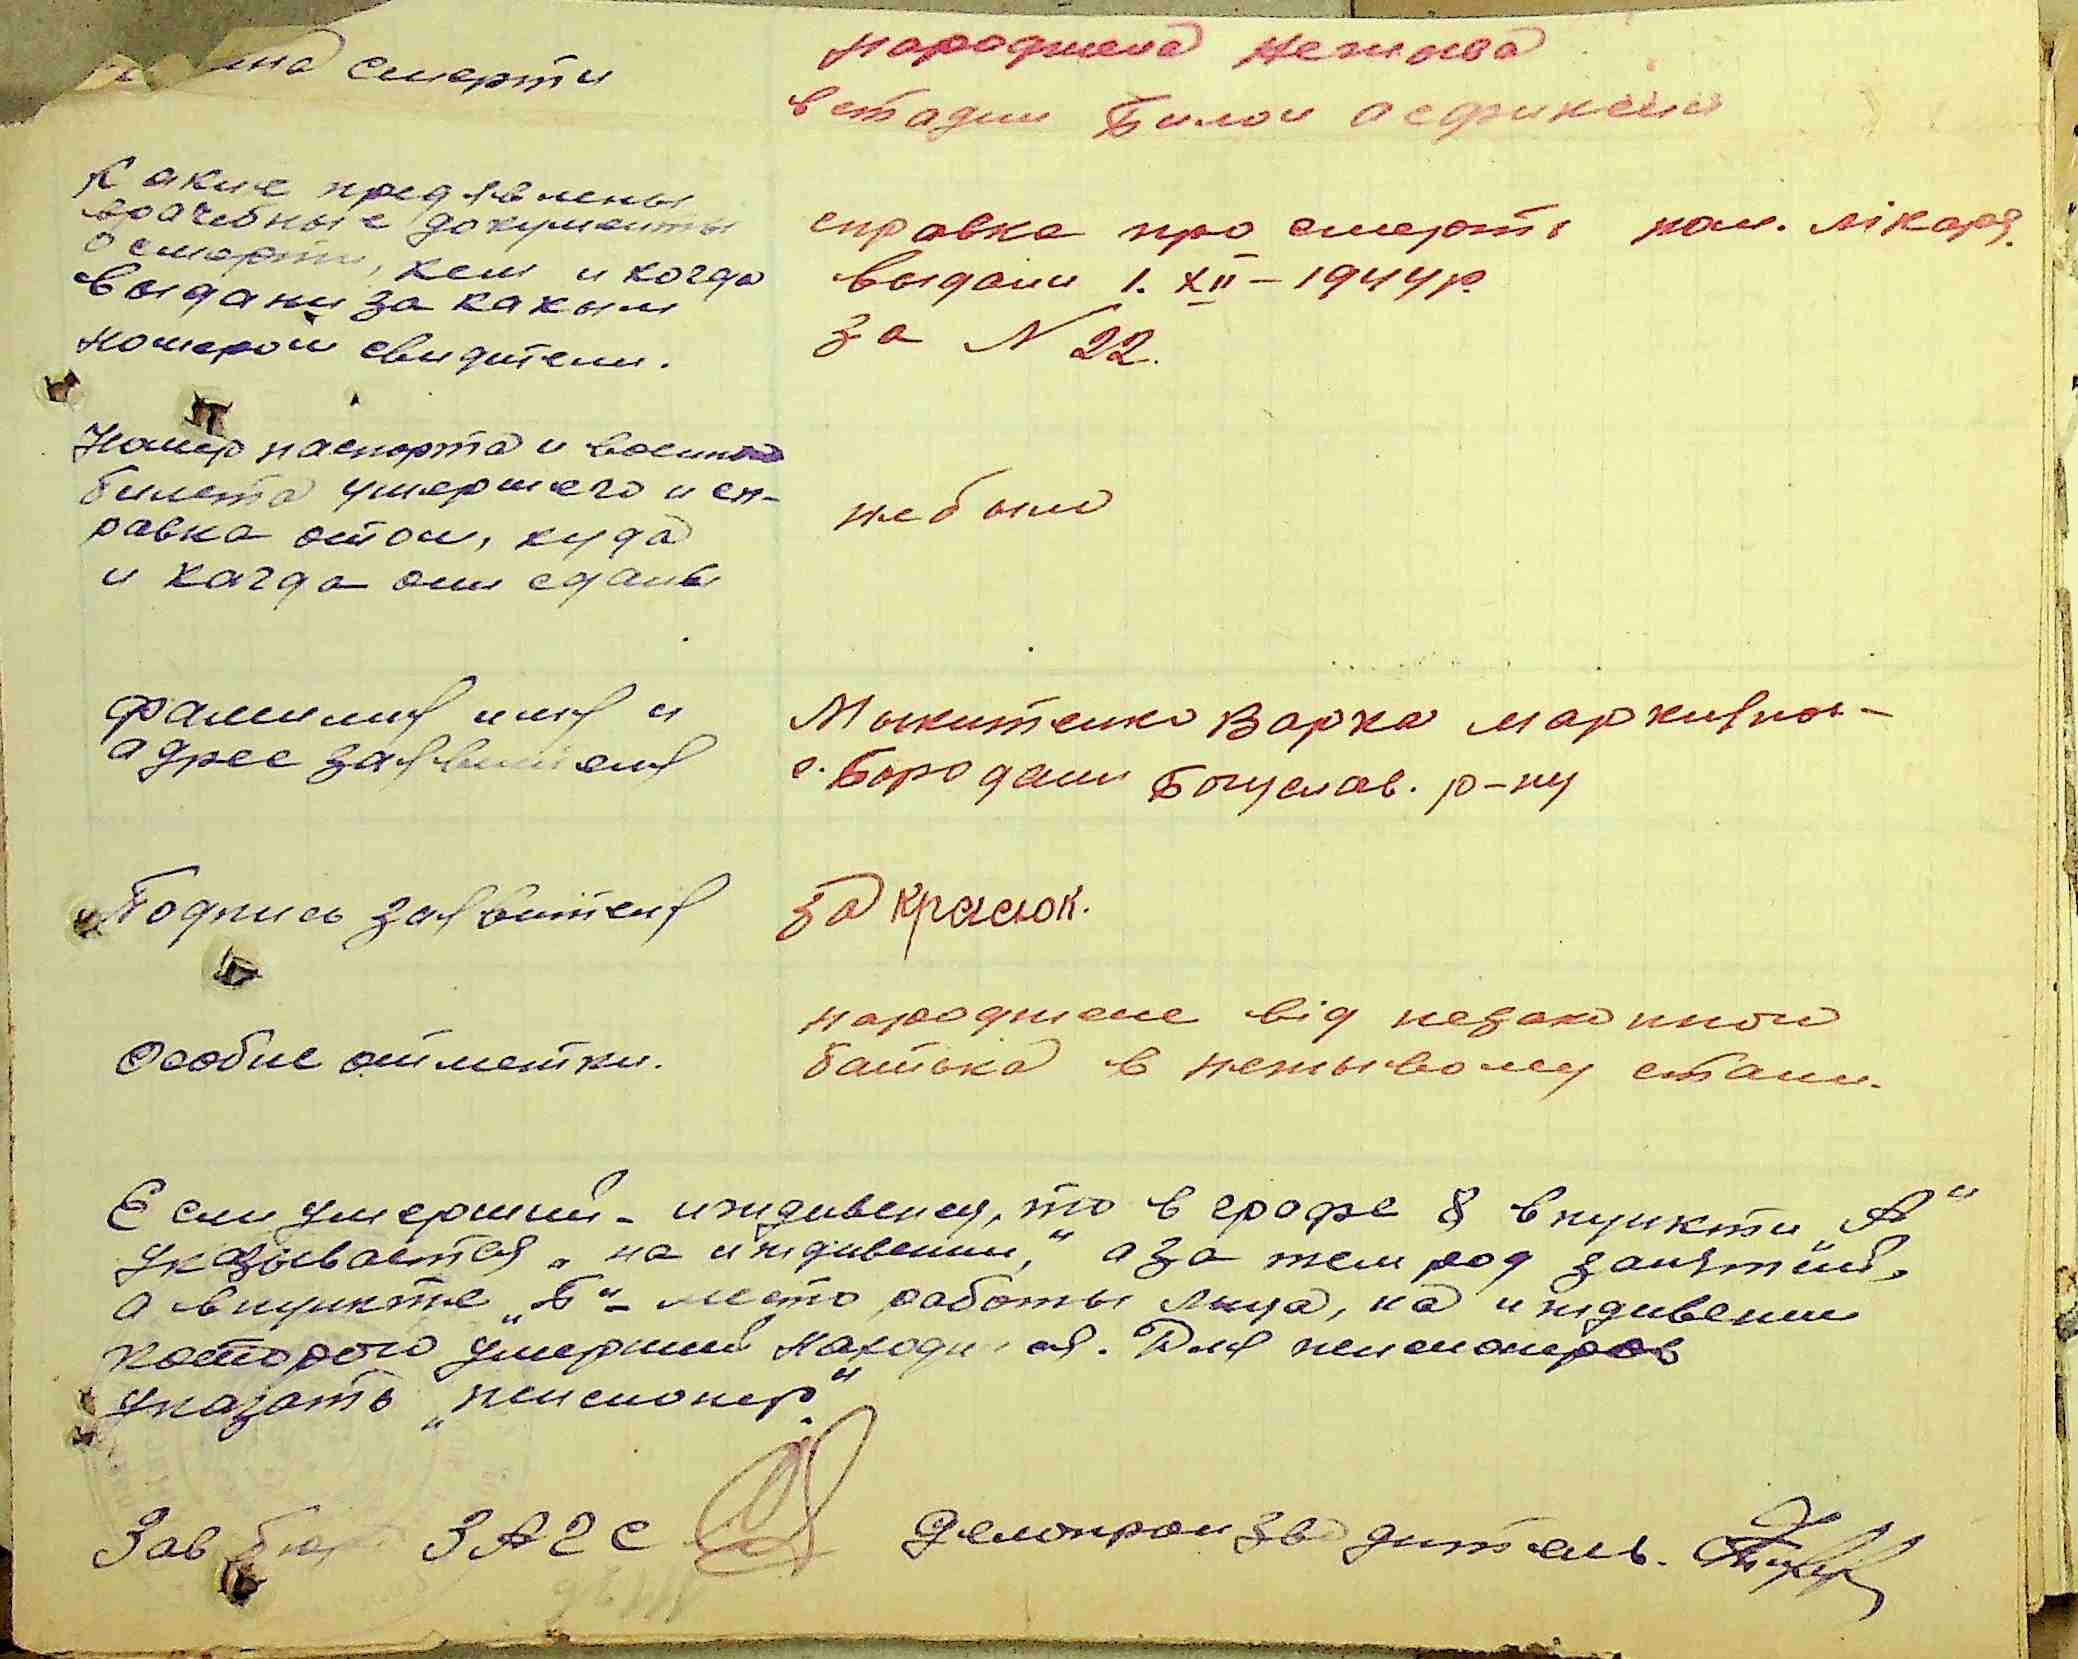 смерти
народжена нежива
в стадии билои асфикции
Какие предявлены
врачебные документы
о смерти, кем и когда
выдани за каким
номером свидетели.
справка про смерть пом. лікаря.
выдани 1. XII – 1944 р.
за N 22.
Номер паспорта и военно
билета умершего и сп-
равка отом, куда
и качда они сданы
не было
Фамилия имя и
адрес заявителя
Мыкитенко Варка Маркияно-
с. Бородани Богуслав. р-ну
Подпись заявителя
за Красюк.
Особие отметки.
народжене від незаконного
батька в неживому стани.
Если умерший - иждивенец, то в графе 8 в пункти „А"
указывается „на иждивении," а за тем род занятий,
а в пункте „Б" – место работы лица, на иждивении
которого умерший находился. Для пенсионеров
указать „пенсионер"
Зав бюро ЗАГС
Делопроизводитель.